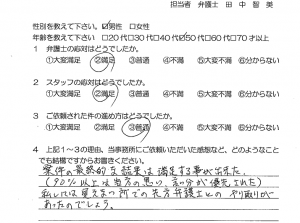 担当者 弁護士 田中智美
性別を教えて下さい。☑男性 □女性
年齢を教えて下さい □20代□30代□40代☑50代□60代□70才以上
1 弁護士の応対はどうでしたか。
①大変満足 ②満足 ③普通 ④不満 ⑤大変不満 ⑥分からない
2 スタッフの応対はどうでしたか。
①大変満足 ②満足 ③普通 ④不満 ⑤大変不満 ⑥分からない
3 ご依頼された件の進め方はどうでしたか。
①大変満足 ②満足 ③普通 ④不満 ⑤大変不満 ⑥分からない
4 上記1~3の理由、当事務所にご依頼いただいた感想など、どのようなことでも結構ですからお書きください。
案件の最終的な結果は満足する事が出来た。
(90%以上は当方の思い、言い分が優先された)
私としては見えない所での先方弁護士とのやり取りが
あったのでしょう。